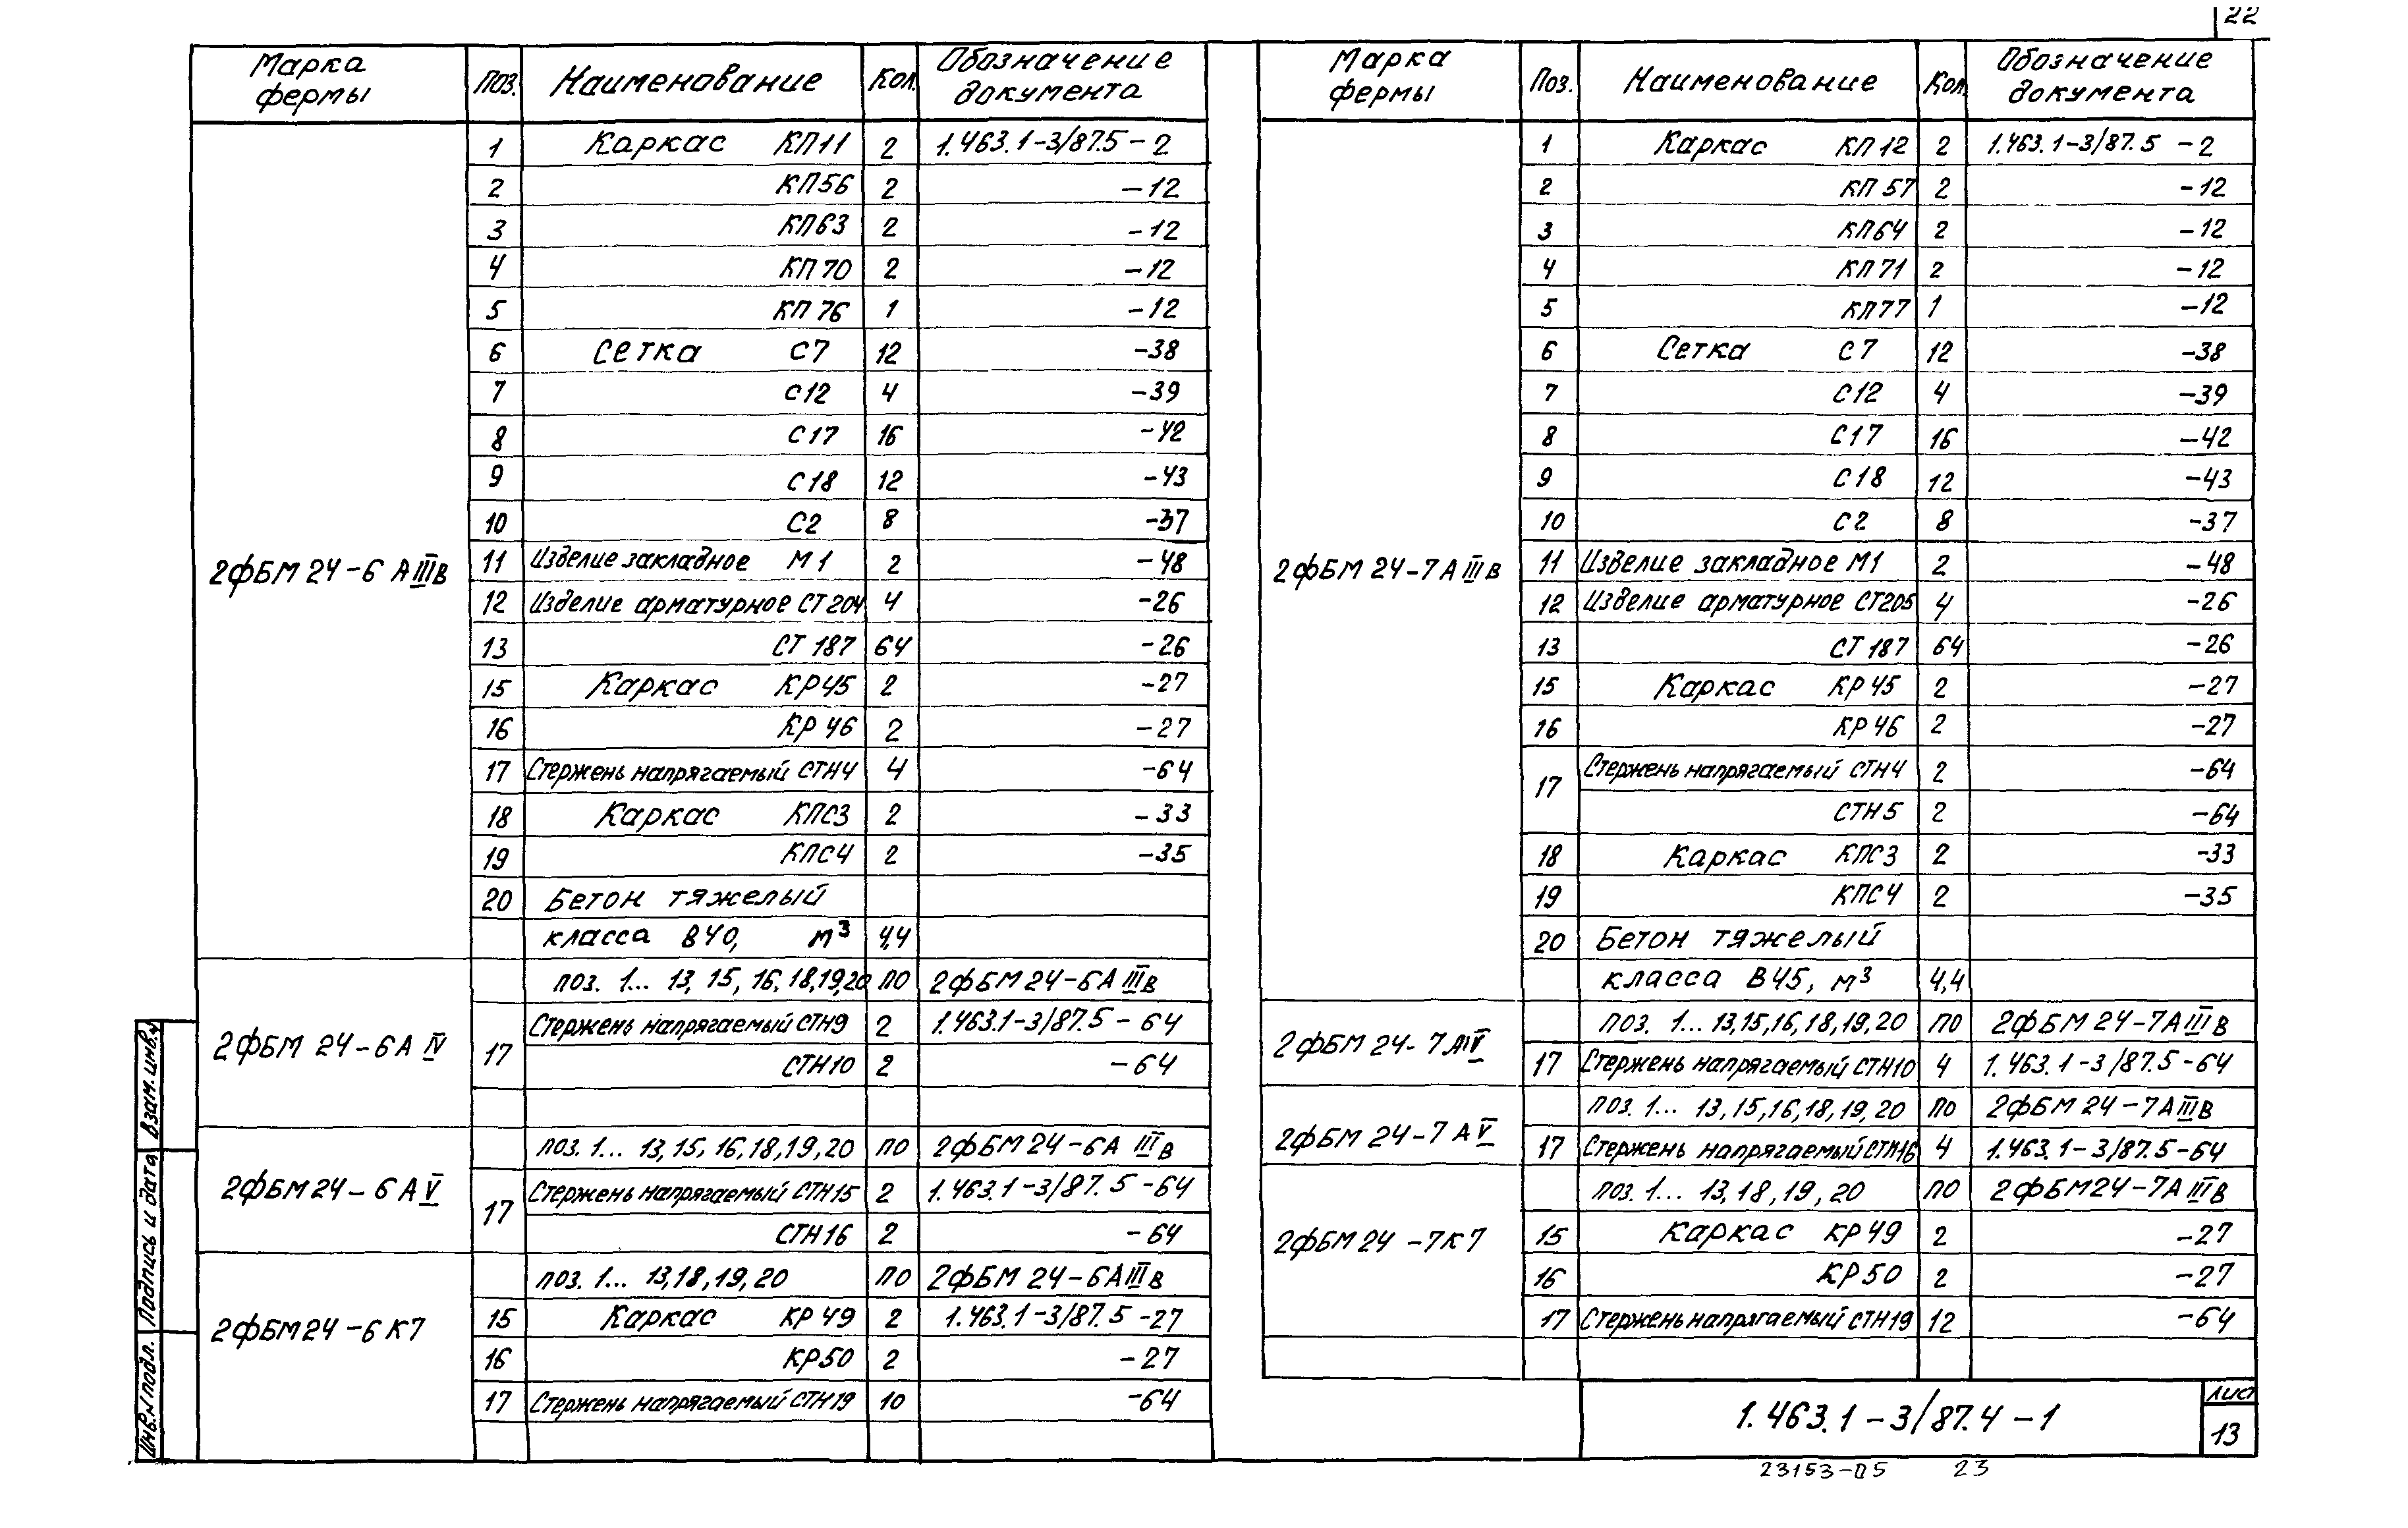 22
Марка фермы Поз. Наименование Кол. Обозначение документа
2ФБМ 24-6 АIIIв
1 Каркас КП11 2 1.463.1-3/87.5-2
2 КП56 2 -12
3 КП63 2 -12
4 КП70 2 -12
5 КП76 1 -12
6 Сетка С7 12 -38
7 С12 4 -39
8 С17 16 -42
9 С18 12 -43
10 С2 8 -37
11 Изделие закладное М1 2 -48
12 Изделие арматурное СТ204 4 -26
13 СТ187 64 -26
15 Каркас КР45 2 -27
16 КР46 2 -27
17 Стержень напрягаемый СТН4 4 -64
18 Каркас КПС3 2 -33
19 КПС4 2 -35
20 Бетон тяжелый
класса В40, м³ 4,4
2ФБМ 24-6А IV
поз. 1... 13, 15, 16, 18, 19, 20 по 2ФБМ 24-6А IIIв
17 Стержень напрягаемый СТН9 2 1.463.1-3/87.5-64
СТН10 2 -64
2ФБМ 24-6АV
поз. 1... 13, 15, 16, 18, 19, 20 по 2ФБМ 24-6А IIIв
17 Стержень напрягаемый СТН15 2 1.463.1-3/87.5-64
СТН16 2 -64
2ФБМ 24-6К7
поз. 1... 13, 18, 19, 20 по 2ФБМ 24-6АIIIв
15 Каркас КР49 2 1.463.1-3/87.5-27
16 КР50 2 -27
17 Стержень напрягаемый СТН19 10 -64
Марка фермы Поз. Наименование Кол. Обозначение документа
2ФБМ 24-7АIIIв
1 Каркас КП12 2 1.463.1-3/87.5-2
2 КП57 2 -12
3 КП64 2 -12
4 КП71 2 -12
5 КП77 1 -12
6 Сетка С7 12 -38
7 С12 4 -39
8 С17 16 -42
9 С18 12 -43
10 С2 8 -37
11 Изделие закладное М1 2 -48
12 Изделие арматурное СТ205 4 -26
13 СТ187 64 -26
15 Каркас КР45 2 -27
16 КР46 2 -27
17 Стержень напрягаемый СТН4 2 -64
СТН5 2 -64
18 Каркас КПС3 2 -33
19 КПС4 2 -35
20 Бетон тяжелый
класса В45, м³ 4,4
2ФБМ 24-7АIV
поз. 1... 13, 15, 16, 18, 19, 20 по 2ФБМ 24-7АIIIв
17 Стержень напрягаемый СТН10 4 1.463.1-3/87.5-64
2ФБМ 24-7АV
поз. 1... 13, 15, 16, 18, 19, 20 по 2ФБМ 24-7АIIIв
17 Стержень напрягаемый СТН16 4 1.463.1-3/87.5-64
2ФБМ 24-7К7
поз. 1... 13, 18, 19, 20 по 2ФБМ24-7АIIIв
15 Каркас КР49 2 -27
16 КР50 2 -27
17 Стержень напрягаемый СТН19 12 -64
1.463.1-3/87.4-1
Лист
13
Инв.№ подл. Подпись и дата Взам. инв.№
23153-05 23